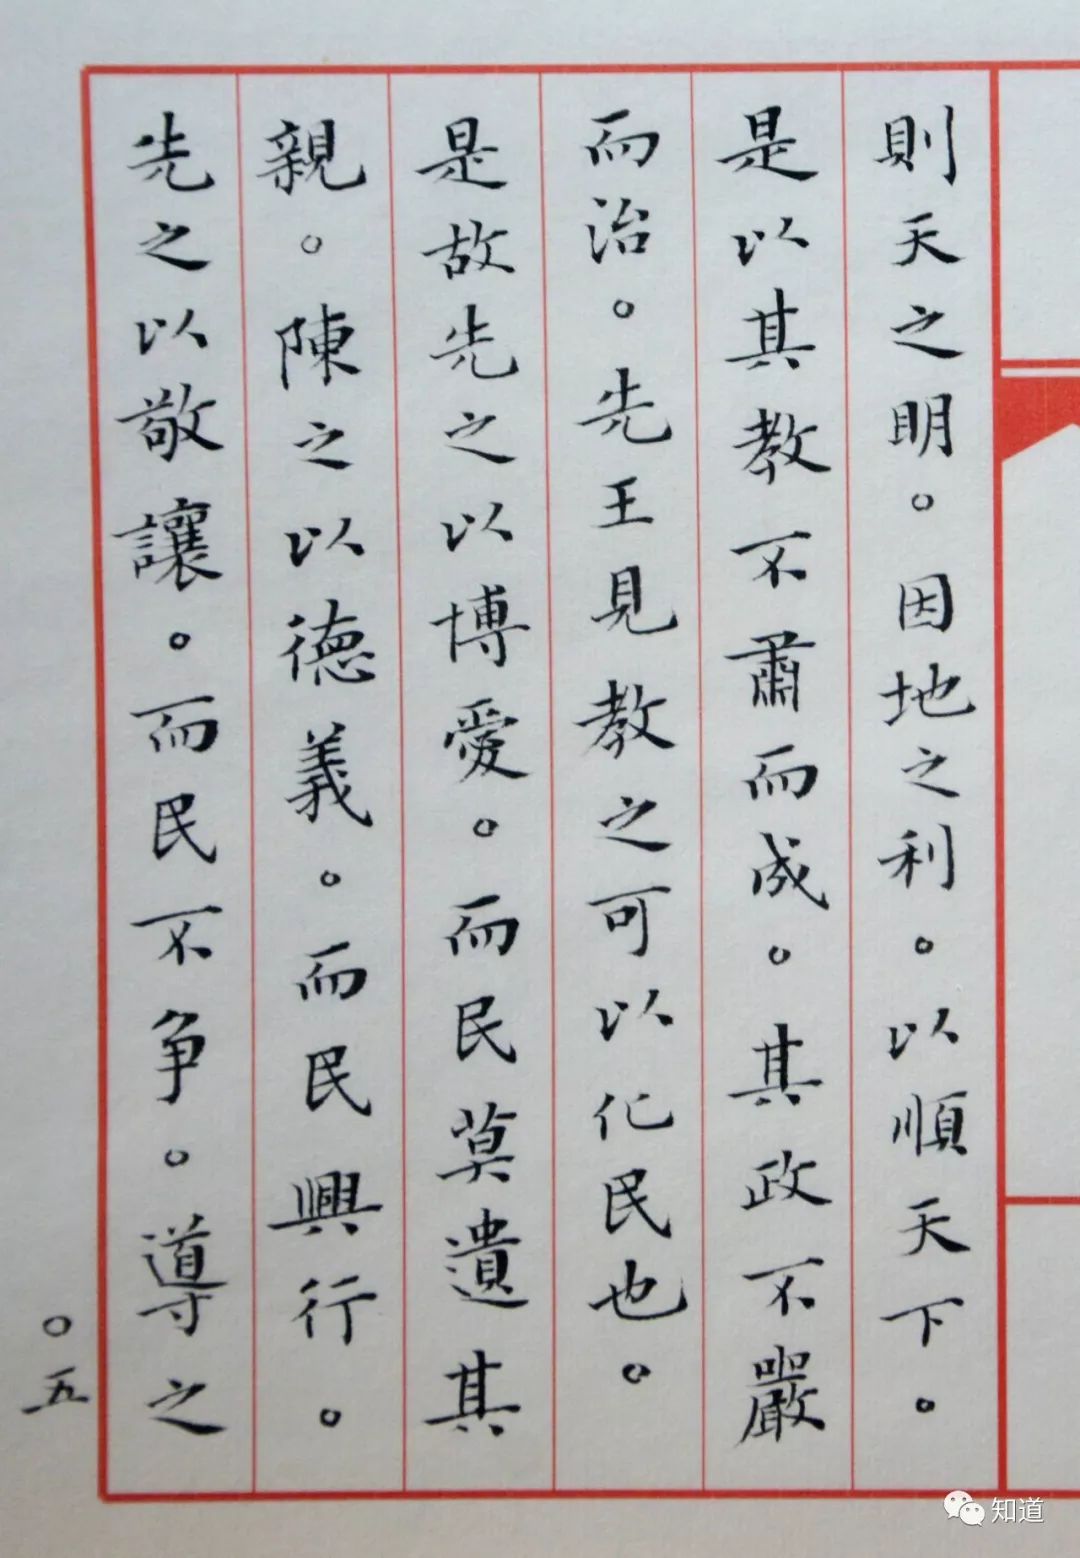 則天之明。因地之利。以順天下。
是以其教不肅而成。其政不嚴
而治。先王見教之可以化民也。
是故先之以博愛。而民莫遺其
親。陳之以德義。而民興行。
先之以敬讓。而民不爭。導之
〇五
知道